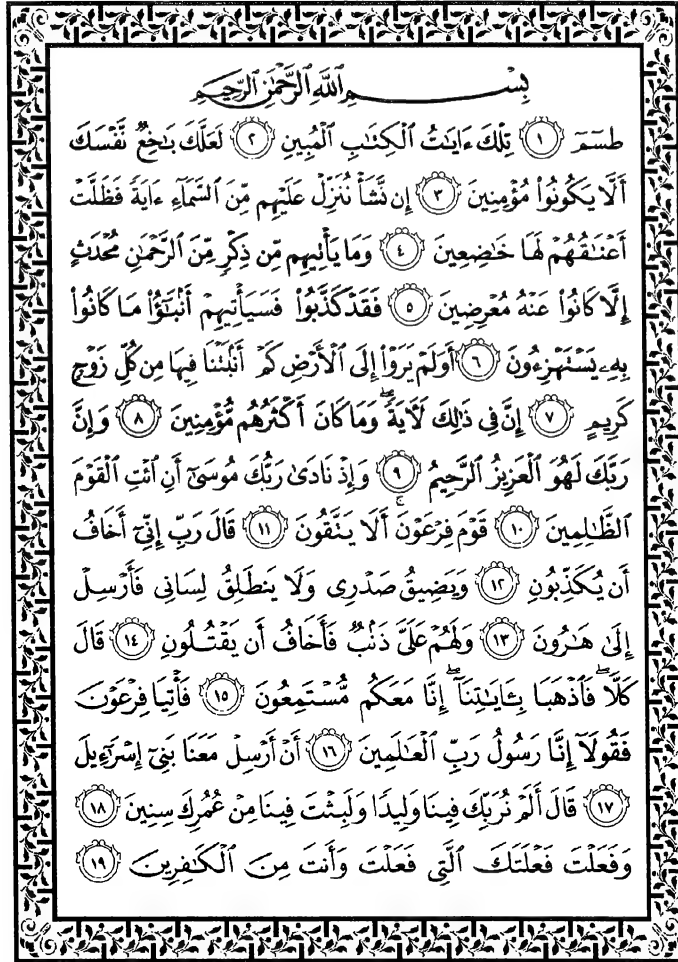 بِسْمِ ٱللَّهِ ٱلرَّحْمَٰنِ ٱلرَّحِيمِ
طسٓمٓ ١ تِلْكَ ءَايَٰتُ ٱلْكِتَٰبِ ٱلْمُبِينِ ٢ لَعَلَّكَ بَٰخِعٌ نَّفْسَكَ
أَلَّا يَكُونُوا۟ مُؤْمِنِينَ ٣ إِن نَّشَأْ نُنَزِّلْ عَلَيْهِم مِّنَ ٱلسَّمَآءِ ءَايَةً فَظَلَّتْ
أَعْنَٰقُهُمْ لَهَا خَٰضِعِينَ ٤ وَمَا يَأْتِيهِم مِّن ذِكْرٍ مِّنَ ٱلرَّحْمَٰنِ مُحْدَثٍ
إِلَّا كَانُوا۟ عَنْهُ مُعْرِضِينَ ٥ فَقَدْ كَذَّبُوا۟ فَسَيَأْتِيهِمْ أَنۢبَٰٓؤُا۟ مَا كَانُوا۟
بِهِۦ يَسْتَهْزِءُونَ ٦ أَوَلَمْ يَرَوْا۟ إِلَى ٱلْأَرْضِ كَمْ أَنۢبَتْنَا فِيهَا مِن كُلِّ زَوْجٍ
كَرِيمٍ ٧ إِنَّ فِى ذَٰلِكَ لَءَايَةً ۖ وَمَا كَانَ أَكْثَرُهُم مُّؤْمِنِينَ ٨ وَإِنَّ
رَبَّكَ لَهُوَ ٱلْعَزِيزُ ٱلرَّحِيمُ ٩ وَإِذْ نَادَىٰ رَبُّكَ مُوسَىٰٓ أَنِ ٱئْتِ ٱلْقَوْمَ
ٱلظَّٰلِمِينَ ١٠ قَوْمَ فِرْعَوْنَ ۚ أَلَا يَتَّقُونَ ١١ قَالَ رَبِّ إِنِّىٓ أَخَافُ
أَن يُكَذِّبُونِ ١٢ وَيَضِيقُ صَدْرِى وَلَا يَنطَلِقُ لِسَانِى فَأَرْسِلْ
إِلَىٰ هَٰرُونَ ١٣ وَلَهُمْ عَلَىَّ ذَنۢبٌ فَأَخَافُ أَن يَقْتُلُونِ ١٤ قَالَ
كَلَّا ۖ فَٱذْهَبَا بِـَٔايَٰتِنَآ ۖ إِنَّا مَعَكُم مُّسْتَمِعُونَ ١٥ فَأْتِيَا فِرْعَوْنَ
فَقُولَآ إِنَّا رَسُولُ رَبِّ ٱلْعَٰلَمِينَ ١٦ أَنْ أَرْسِلْ مَعَنَا بَنِىٓ إِسْرَٰٓءِيلَ
١٧ قَالَ أَلَمْ نُرَبِّكَ فِينَا وَلِيدًا وَلَبِثْتَ فِينَا مِنْ عُمُرِكَ سِنِينَ ١٨
وَفَعَلْتَ فَعْلَتَكَ ٱلَّتِى فَعَلْتَ وَأَنتَ مِنَ ٱلْكَٰفِرِينَ ١٩